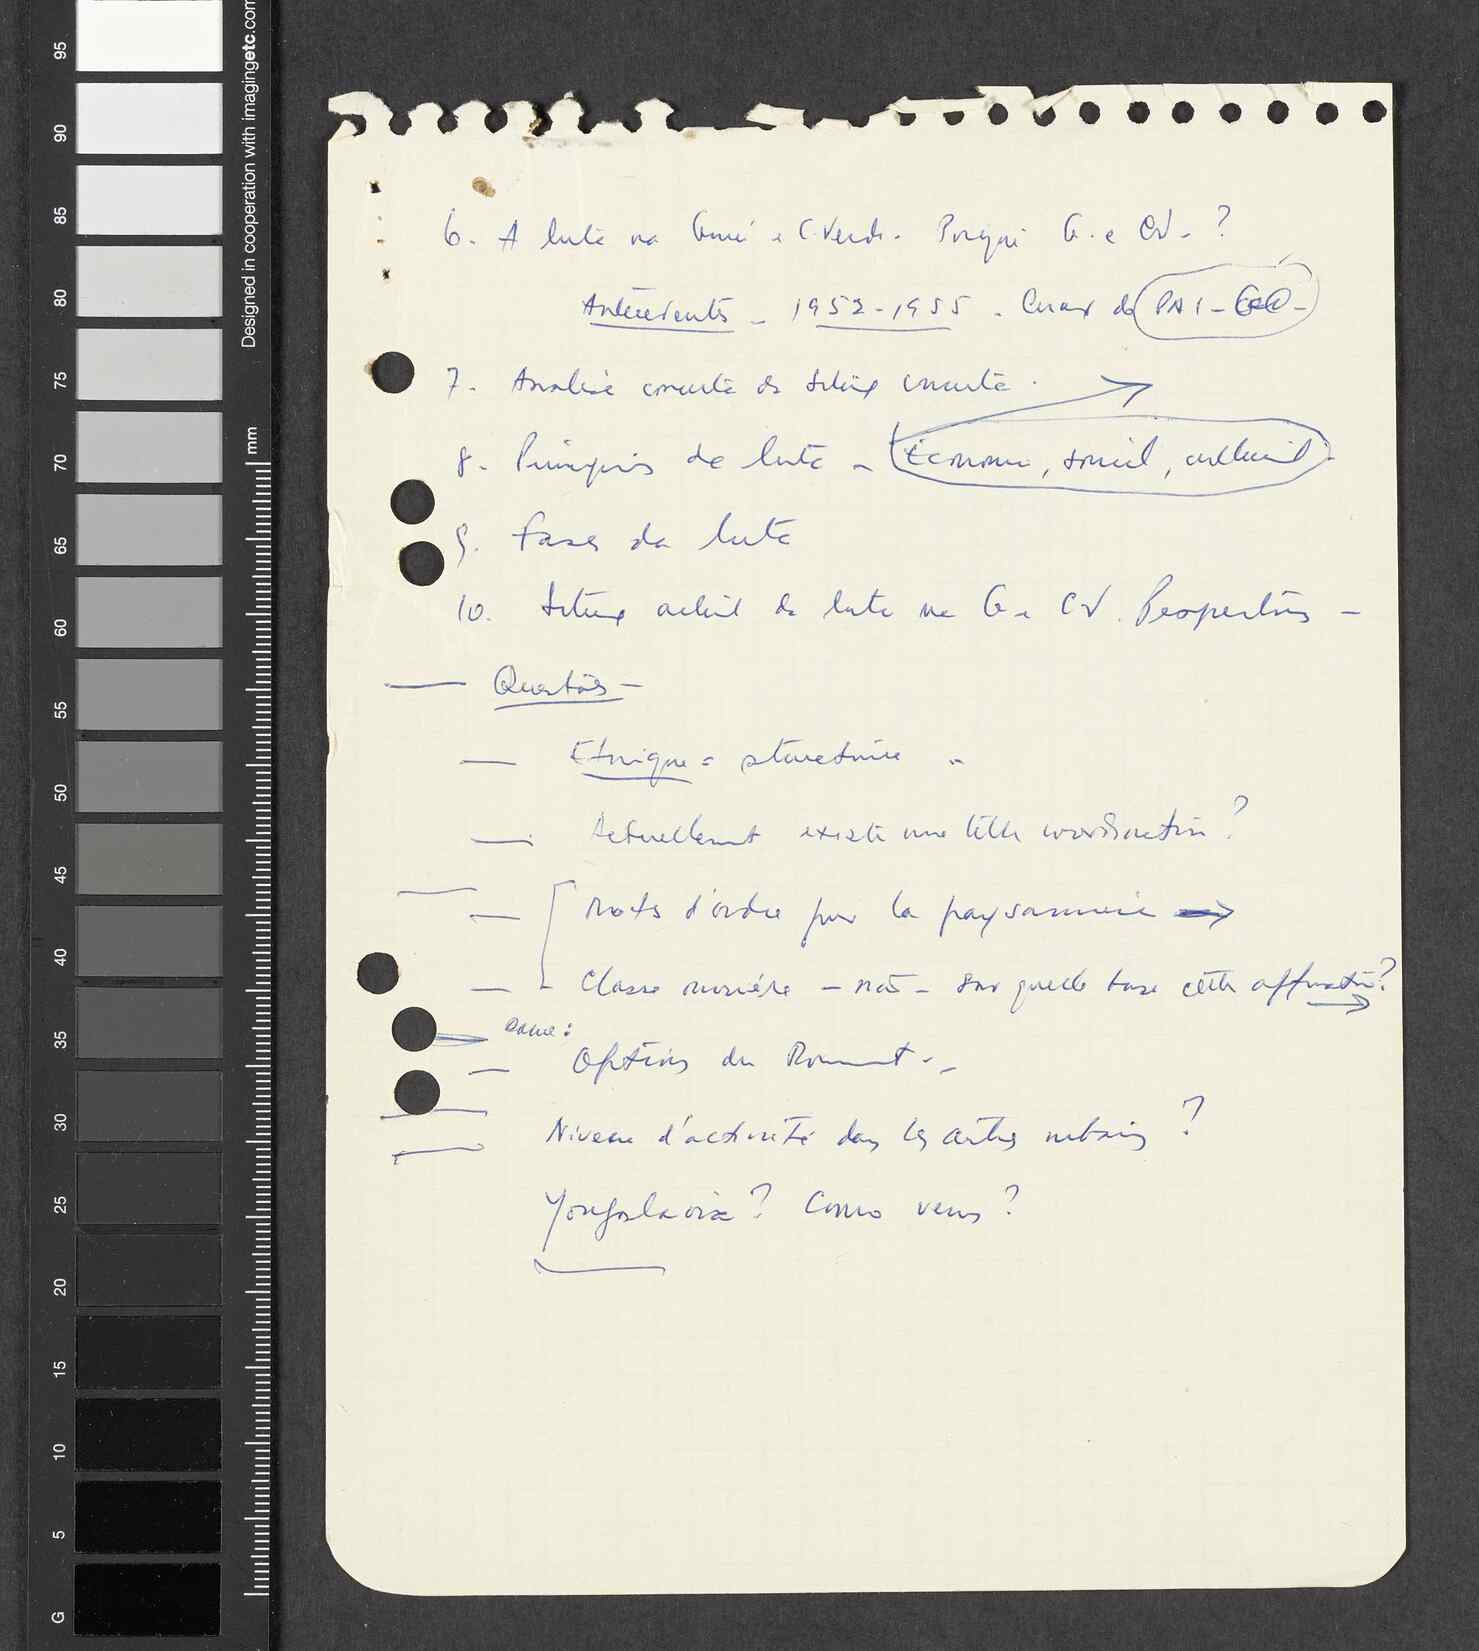 95
90
85
80
75
70
65
60
55
50
45
40
35
30
25
20
15
10
5
G
Designed in cooperation with imagingetc.com
mm
6. A luta na Guiné e C. Verde. Porquê G. e CV. ?
Antecedentes - 1952-1955 . do PAI -
7. Análise concreta da situação concreta .
8. Princípios da luta - Economia, social, cultural
9. Fases da luta
10. Situação actual da luta na G e CV. Perspectivas -
— Questões -
— Ethnique = structure -
— Actuellement existe une telle coordination ?
— Mots d'ordre pour la paysannerie →
— Classe ouvrière - não - sur quelle base cette affirmation ?
Options du -
— Niveau d'activité dans les centres urbains ?
Yougoslavie ? Como ?